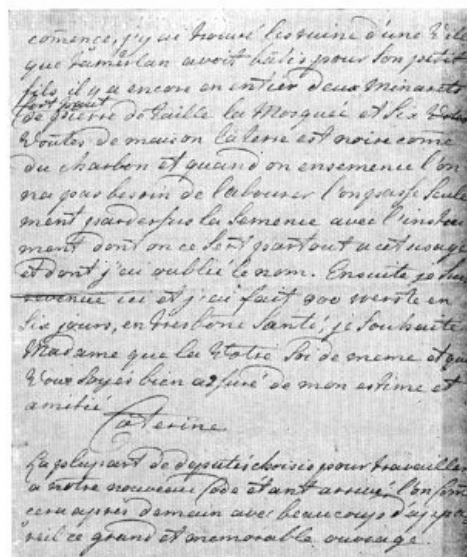 comence, j'y ai trouvé les ruine d'une Vile
que tamerlan avoit batis pour son petit
fils il y a encore en entier deux minarets
fort haut
de pierre de taille la Mosquée et Six
Voutes de maison la terre est noire come
du charbon et quand on ensemence l'on
na pas besoin de labourer l'on passe seule
ment pardessus la Semence avec l'instru
ment dont on ce sert partout a cet usage
et dont j'ai oublié le nom. Ensuite je suis
revenue ici et j'ai fait 900 verste en
Six jours, en tres bone Santé; je Souhaite
Madame que la Votre Soi de meme et que
Vous Soyés bien assuré de mon estime et
amitié
Caterine
La plupart de deputés choisis pour travailler
a notre nouveau Code étant arrivé, l'on
cera après demain avec beaucoup d'appa
reil ce grand et memorable ouvrage.